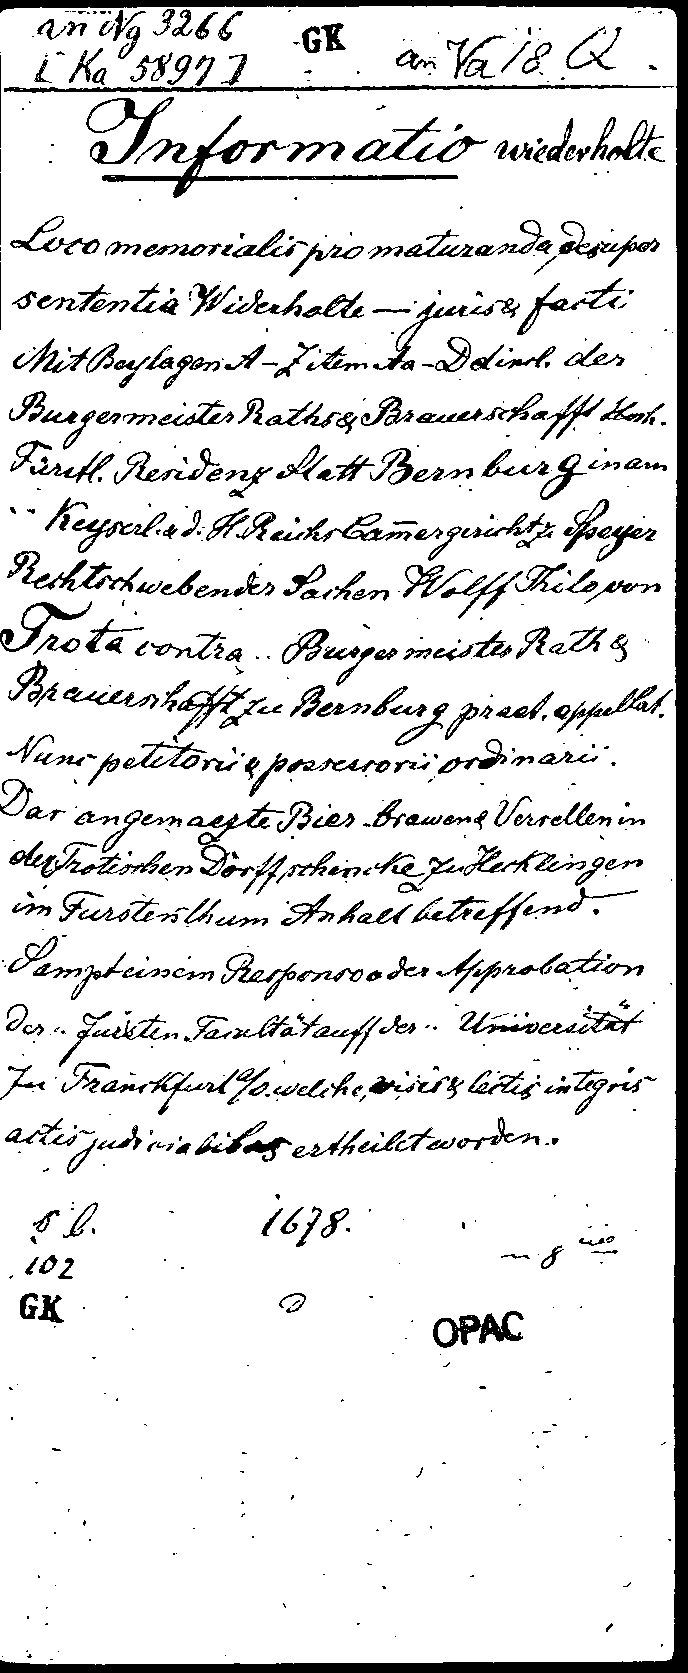 an Ng 3266 GK an Va 18. Q.
[Ka 5897]
Informatio wiederholte
Loco memorialis pro maturanda desuper
sententia Widerholte — juris & facti
Mit Beylagen A-Z item Aa-Dd incl. der
Burgermeister Raths & Brauerschafft Hoch-
Fürstl. Residenz Statt Bernburg in am
.. Keyserl. u. d. H. Reichs Cam̄ergericht z. Speyer
Rechtschwebender Sachen Wolff Thilo von
Trota contra .. Burgermeister Rath &
Brauerschafft zu Bernburg praet. appellat.
Nunc petitorii & possessorii ordinarii.
Dar angemaezte Bier-brawen & Versellen in
der Trotischen Dorffschencke zu Hecklingen
im Furstenthum Anhalt betreffend.
Sampt einem Responso oder Approbation
der .. Juristen Facultät auff der .. Universität
zu Franckfurt a/O. welche, visis & lectis integris
actis judicialibus ertheilet worden.
s. l. 1678.
102
GK
OPAC